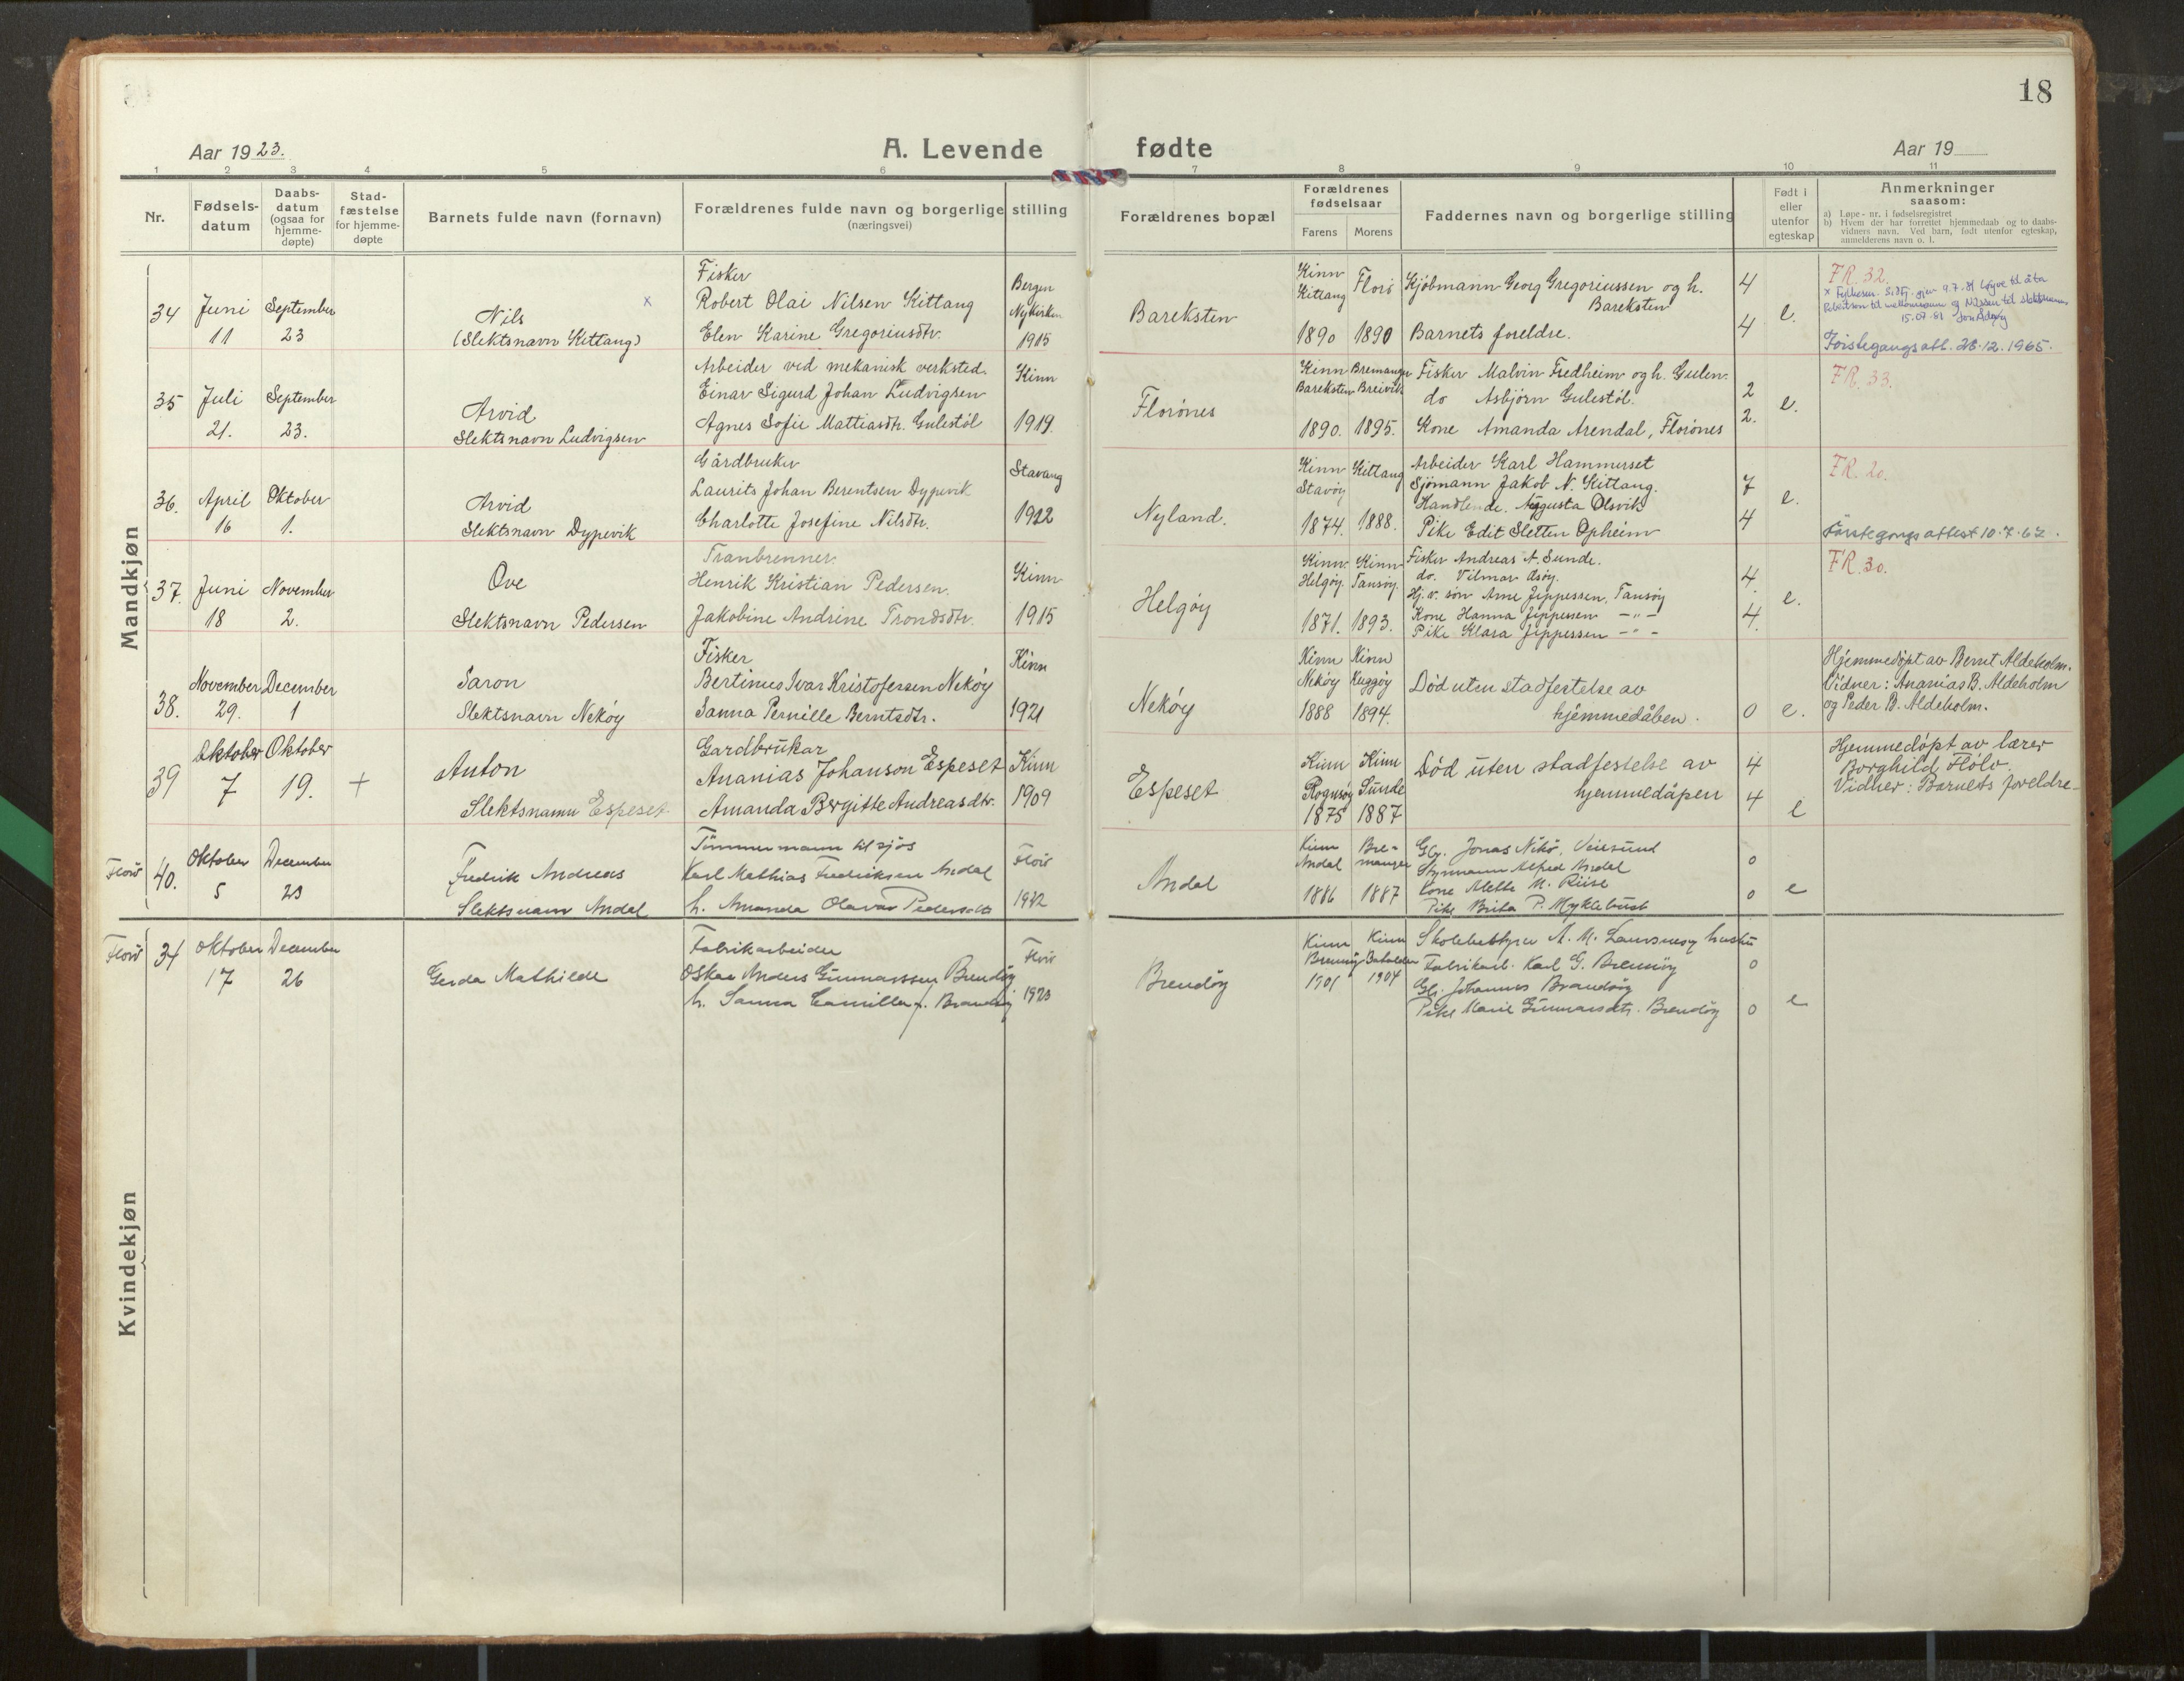 18
Aar 1923.
A. Levende fødte
Aar 19
1 2 3 4 5 6 7 8 9 10 11
Nr.
Fødsels-
datum
Daabs-
datum
(ogsaa for
hjemme-
døpte)
Stad-
fæstelse
for hjemme-
døpte
Barnets fulde navn (fornavn)
Forældrenes fulde navn og borgerlige stilling
(næringsvei)
Forældrenes bopæl
Forældrenes
fødselsaar
Farens Morens
Faddernes navn og borgerlige stilling
Født i
eller
utenfor
egteskap
Anmerkninger
saasom:
a) Løpe-nr. i fødselsregistret
b) Hvem der har forrettet hjemmedaab og to daabs-
vidners navn. Ved barn, født utenfor egteskap,
anmelderens navn o. l.
Mandkjøn
34
Juni
11
September
23
Nils x
(Slektsnavn Kittang)
Fisker
Robert Olai Nilsen Kittang
Elen Karine Gregoriusdtr.
Bergen
Nykirken
1915
Bareksten
Kinn
Kittang
1890
Florø
1890
Kjöbmann Georg Gregoriussen og h.
Bareksten
Barnets foreldre.
4
4
e.
F.R. 32.
x Fylkesm. S&Fj. gjev 9.7.81 løyve til å ta
Robertson til mellomnamn og Nilssen til slektsnamn.
15.07.81
Förstegangsatt. 28.12.1965.
35
Juli
21.
September
23.
Arvid
Slektsnavn Ludvigsen
Arbeider ved mekanisk verksted.
Einar Sigurd Johan Ludvigsen
Agnes Sofie Mattiasdtr. Gulestöl
Kinn
1919.
Florönes
Kinn
Bareksten
1890.
Bremanger
Breivik
1895.
Fisker Malvin Fredheim og h. Gulen.
do Asbjörn Gulestöl.
Kone Amanda Arendal, Florönes
2
2.
e.
F.R. 33.
36.
April
16
Oktober
1.
Arvid
Slektsnavn Dypevik
Gårdbruker
Laurits Johan Berentsen Dypevik
Charlotte Josefine Nilsdtr.
Stavang
1912
Nyland.
Kinn
Stavöy
1874.
Kittang
1888.
Arbeider Karl Hammerset
Sjömann Jakob N. Kittang.
Handlende. Augusta Olsvik
Pike Edit Sletten Opheim
7
4
e.
F.R. 20.
Förstegangsattest 10.7.62.
37.
Juni
18
November
2.
Ove
Slektsnavn Pedersen
Tranbrenner.
Henrik Kristian Pedersen.
Jakobine Andrine Trondsdtr.
Kinn
1915
Helgöy
Kinn.
Helgöy.
1871.
Kinn
Tansöy.
1893.
Fisker Andreas A. Sunde.
do. Vilmar Osöy.
Hj.v. sön Arne Jippessen, Tansöy
Kone Hanna Jippessen —"—
Pike Klara Jippessen —"—
4.
4.
e.
F.R. 30.
38.
November
29.
December
1
Saron
Slektsnavn Neköy
Fisker
Bertinus Ivar Kristofersen Neköy
Sanna Pernille Berntsdtr.
Kinn
1921
Neköy
Kinn
Neköy
1888
Kinn
Kuggöy
1894.
Död uten stadfestelse av
hjemmedåben.
0
e.
Hjemmedöpt av Bernt Aldeholm.
Vidner: Ananias B. Aldeholm
og Peder B. Aldeholm.
39
Oktober
7
Oktober
19.
+
Anton
Slektsnamn Espeset
Gardbrukar
Ananias Johanson Espeset
Amanda Bergitte Andreasdtr.
Kinn
1909
Espeset
Kinn
Rognsöy
1875
Kinn
Sunde
1887
Död uten stadfestelse av
hjemmedåpen
4
4
e
Hjemmedöpt av lærer
Borghild Hölö.
Vidner: Barnets foreldre
Florö
40.
Oktober
5
December
23
Fredrik Andreas
Slektsnavn Andal
Tömmermann til sjös
Karl Mathias Fredriksen Andal
h. Amanda Olava Pedersdtr
Florö
1922
Andal
Kinn
Andal
1886
Bre-
manger
1887
Gbr. Jonas Nekö, Veiesund
Styrmann Alfred Andal
Kone Alette M. Riise
Pike Brita P. Myklebust
0
0
e
Kvindekjøn
Florö
34
Oktober
17
December
26
Gerda Mathilde
Fabrikarbeider
Oskar Anders Gunnarssen Brendöy
h. Sanna Camilla f. Brandöy
Florö
1923
Brendöy
Kinn
1901
Kinn
Batalden
1904
Skolebestyrer A. M. hustru
Fabrikarb. Karl G. Brendöy
Gbr. Johannes Brandöy
Pike Marie Gunnarsdtr. Brendöy
0
0
e